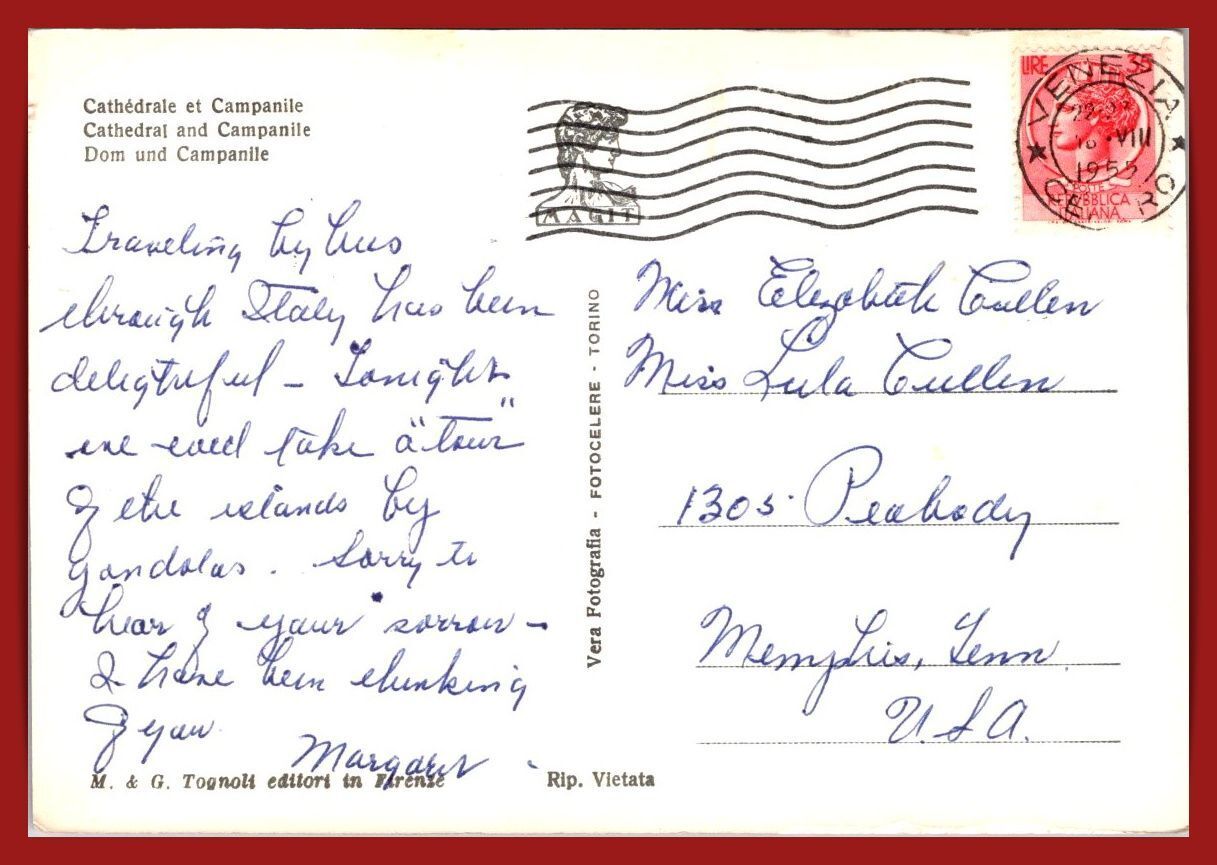 Cathédrale et Campanile
Cathedral and Campanile
Dom und Campanile
MAGIT
LIRE 35
VENEZIA
VIII
1955
POSTE
Traveling by bus
through Italy has been
delightful – Tonight
we will take a "tour"
of the islands by
gondolas. Sorry to
hear of your sorrow –
I have been thinking
of you
Margaret
M. & G. Tognoli editori in Firenze
Rip. Vietata
Vera Fotografia - FOTOCELERE - TORINO
Miss Elizabeth Cullen
Miss Lula Cullen
1305 Peabody
Memphis, Tenn.
U.S.A.